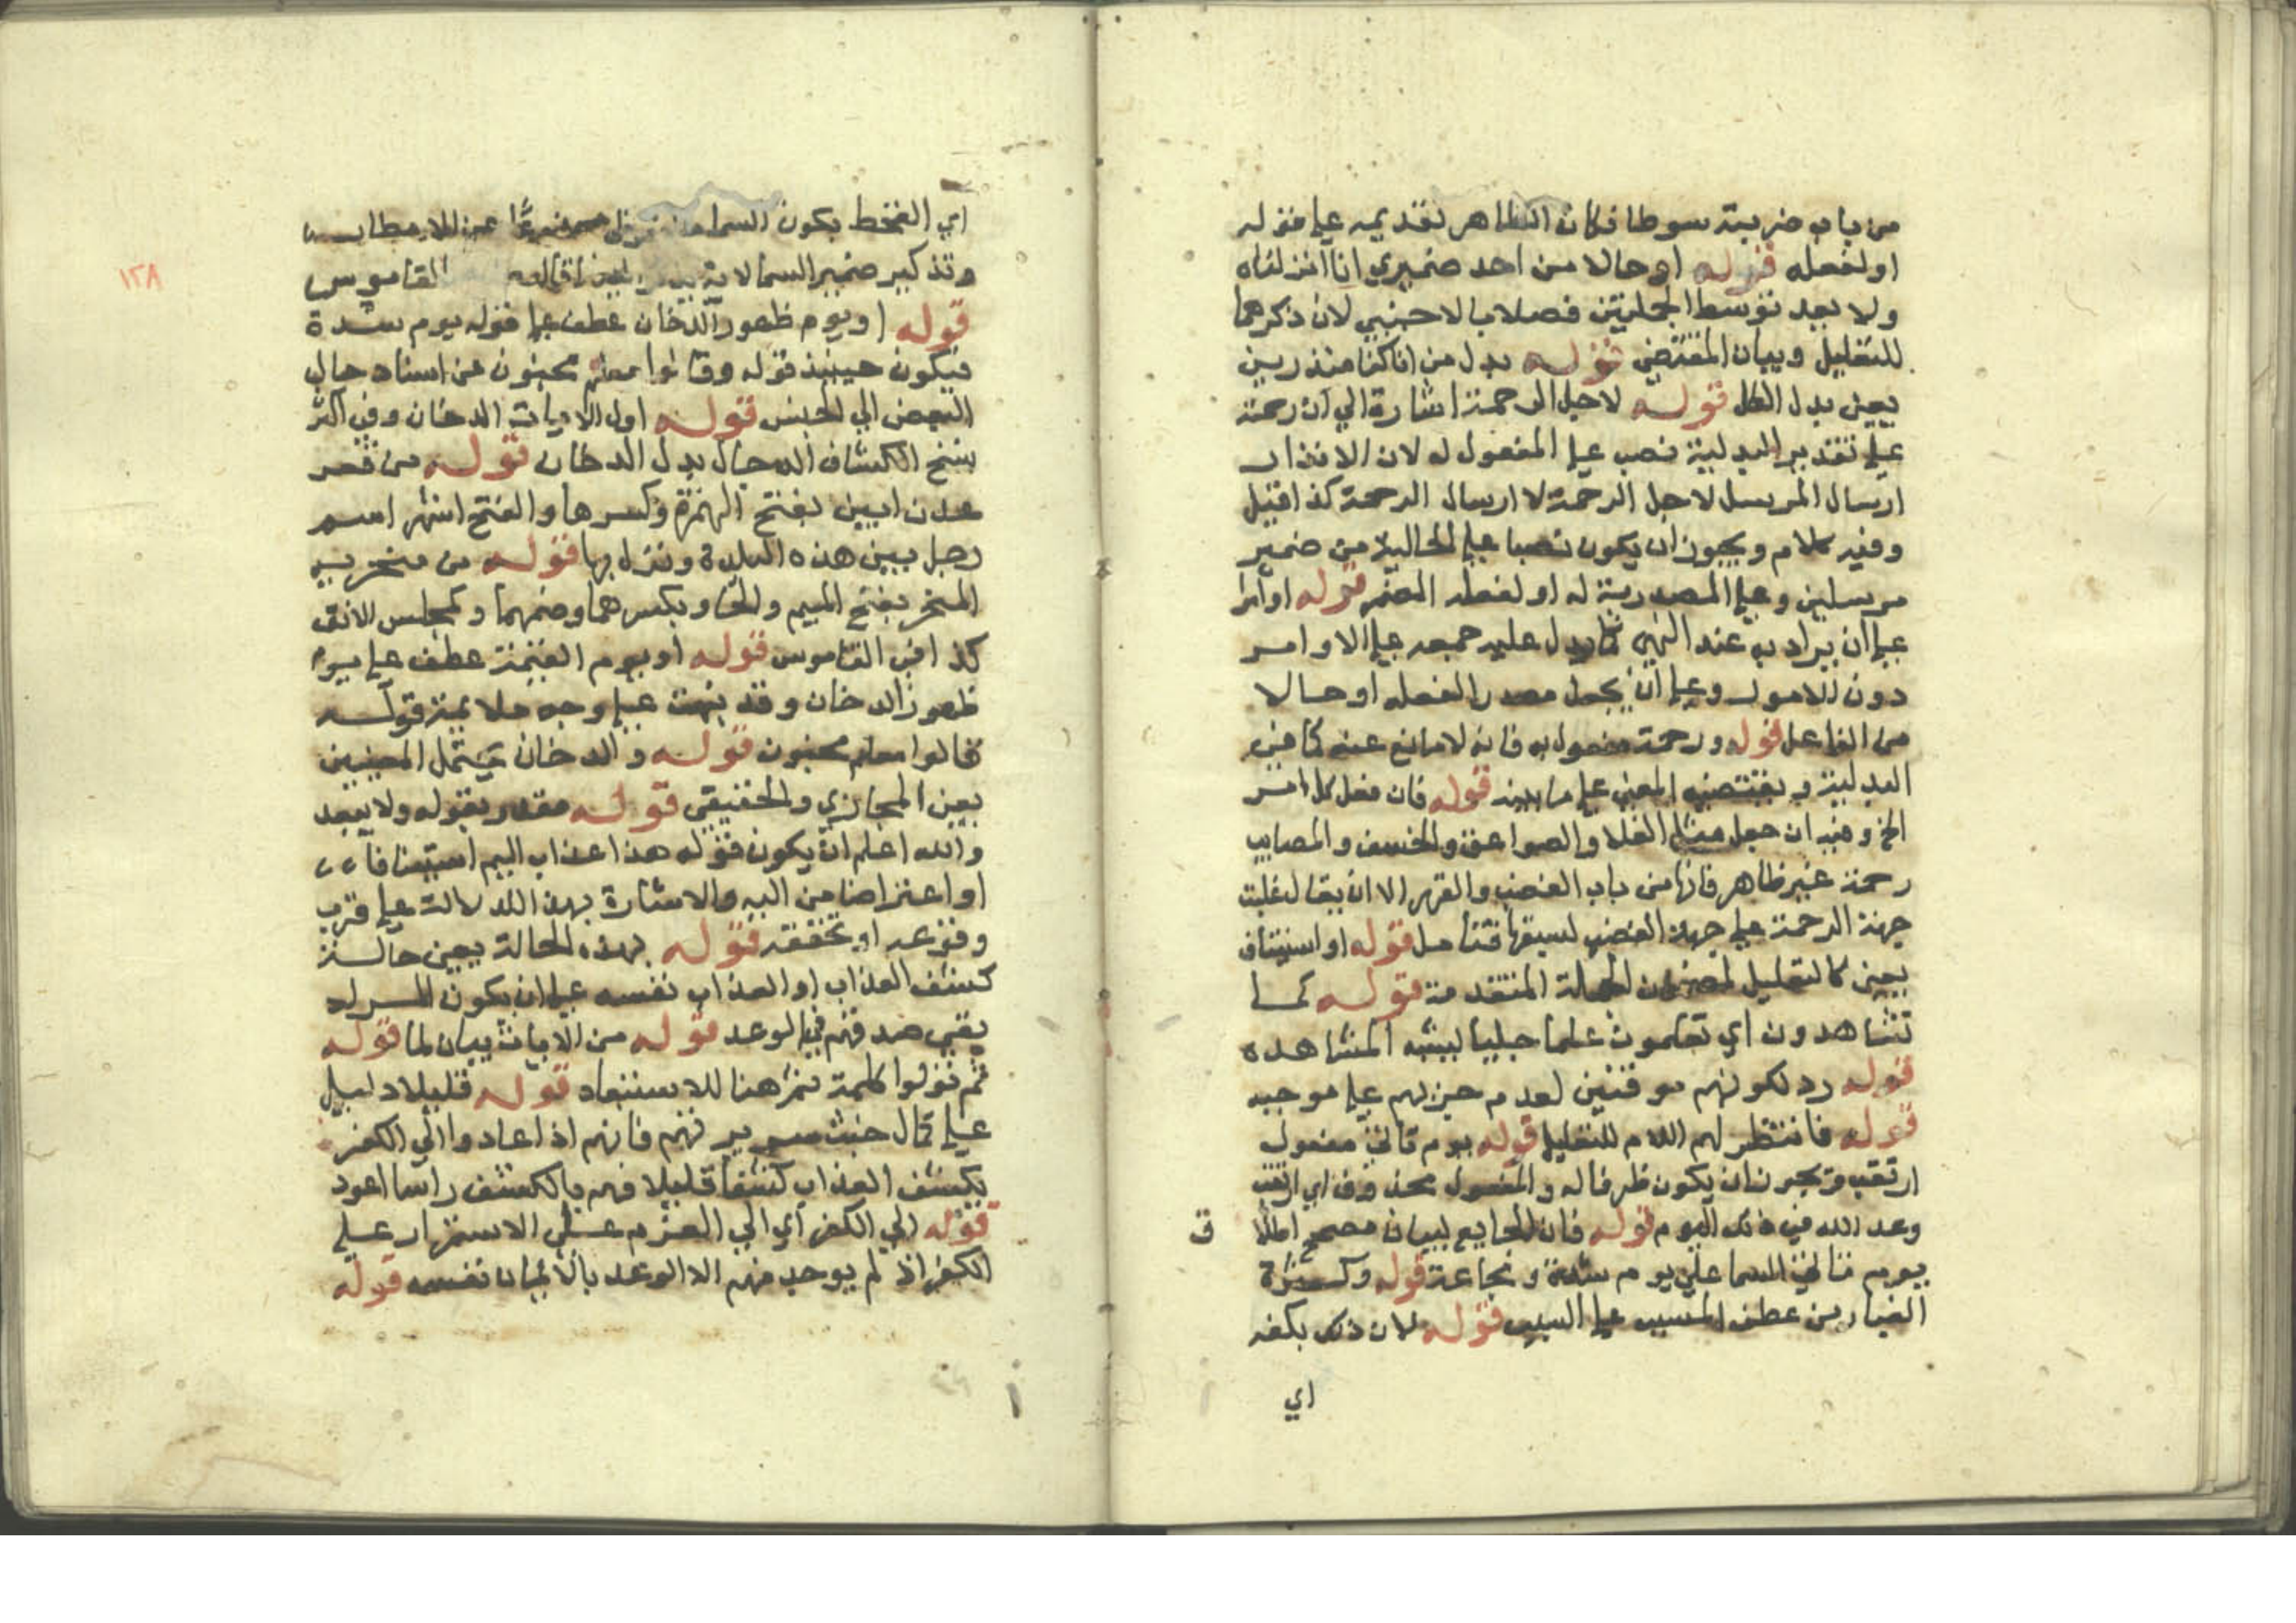 من باب ضربته سوطا فكان الظاهر تقديمه علي قوله
او لفعله قوله او حالا من احد ضميري انا انزلناه
ولا بعد توسط الجملتين فصلا بالاجنبي لان ذكرهما
للتعليل وبيان المقتضي قوله بدل من انا كنا منذرين
يعني بدل الكل قوله لاجل الرحمة اشارة الي ان رحمة
علي تقدير البدلية نصب علي المفعول له لان الانذار
ارسال المرسل لاجل الرحمة لا ارسال الرحمة كذا قيل
وفيه كلام ويجوز ان يكون نصبا علي الحالية من ضمير
مرسلين وعلي المصدرية له او لفعله المضمر قوله او امرا
علي ان يراد به عند النهي كما يدل عليه جمعه علي الاوامر
دون الامور وعلي ان يجعل مصدرا لفعله او حالا
من الفاعل قوله ورحمة مفعول به فانه لا مانع عنه كما في
البدلية ويقتضيه المعني علي ما بينه قوله فان فصل كل امر
الخ وفيه ان جعل مثل الغلا والصواعق والخسف والمصايب
رحمة غير ظاهر فانها من باب الغضب والقهر الا ان يقال غلبت
جهة الرحمة علي جهة الغضب لسبقها فتامل قوله او استيناف
يعني كالتعليل لمضمون الجملة المتقدمة قوله كما
تشاهدون اي تعلمون علما جليا يشبه المشاهده
قوله رد لكونهم موقنين لعدم جريهم علي موجبه
قوله فانتظر لهم اللام للتعليل قوله يوم تاتي مفعول
ارتقب ويجوز ان يكون ظرفا له والمفعول محذوف اي ارتقب
وعد الله في ذلك اليوم قوله فان الجايع لبيان مصحح اطلاق
يوم تاتي السما علي يوم شدة ومجاعة قوله وكثرة
الغبار من عطف المسبب علي السبب قوله لان ذلك يكفه
اي
١٢٨
اي القحط يكون السما عن الامطار
وتذكير ضمير السما لانه القاموس
قوله او يوم ظهور الدخان عطف علي قوله يوم شدة
فيكون حينيذ قوله وقالوا معلم مجنون من اسناد حال
البعض الي الجنس قوله اول الايات الدخان وفي اكثر
نسخ الكشاف الدجال بدل الدخان قوله من قعر
عدن ابين بفتح الهمزة وكسرها والفتح اشهر اسم
رجل بيني هذه البلدة ونزل بها قوله من منخريه
المنخر بفتح الميم والخا وبكسرهما وضمهما وكمجلس الانف
كذا في القاموس قوله او يوم القيمة عطف علي يوم
ظهور الدخان وقد نبهت علي وجه ملايمة قوله
قالوا معلم مجنون قوله والدخان يحتمل المعنيين
يعني المجازي والحقيقي قوله مقدر بقوله ولا يبعد
والله اعلم ان يكون قوله هذا عذاب اليم استينافا
او اعتراضا من البه والاشارة بهذا للدلالة علي قرب
وقوعه او تحققه قوله بهذه الحالة يعني حالة
كشف العذاب او العذاب نفسه علي ان يكون المراد
يقي صدقهم في الوعد قوله من الايات بيان لما قوله
ثم تولوا كلمة ثم هنا للاستبعاد قوله قليلا دليل
علي كمال خبث سريرتهم فانهم اذا عادوا الي الكفر
بكشف العذاب كشفا قليلا فهم بالكشف راسا اعود
قوله الي الكفر اي الي العزم علي الاستمرار علي
الكفر اذ لم يوجد منهم الا الوعد بالايمان نفسه قوله